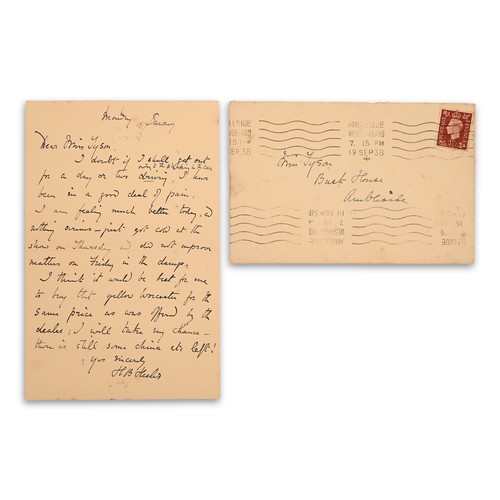 Monday
Dear Miss Tyson
I doubt if I shall get out
for a day or two driving; I have
been in a good deal of pain.
I am feeling much better today, &
nothing serious – just got cold at the
show on Thursday & did not improve
matters on Friday in the damp.
I think it would be best for me
to buy that yellow worcester for the
same price as was offered by the
dealer; I will take my chance –
there is still some china etc left!
yrs sincerely
H B Heelis
AMBLESIDE
WESTMORLAND
7. 15 PM
19 SEP 38
Miss Tyson
Bush House
Ambleside